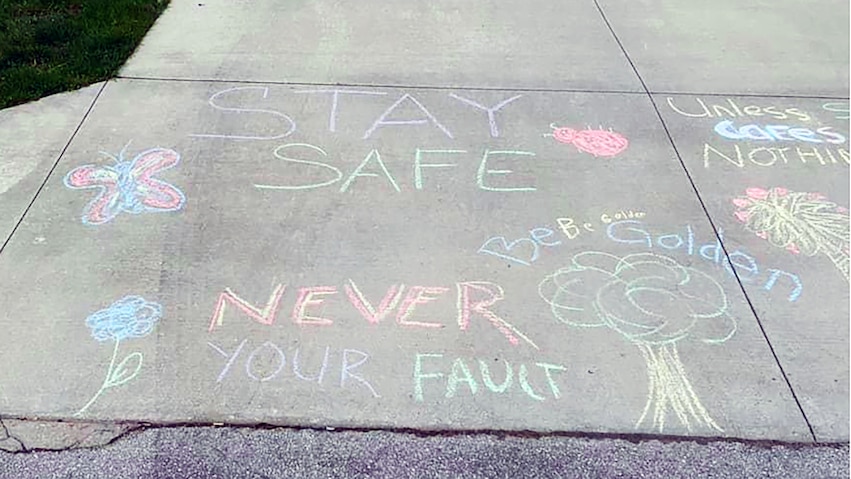 STAY
SAFE
Be Golden
Be Golden
NEVER
YOUR FAULT
UNLESS S
CaFES
NOTHIN